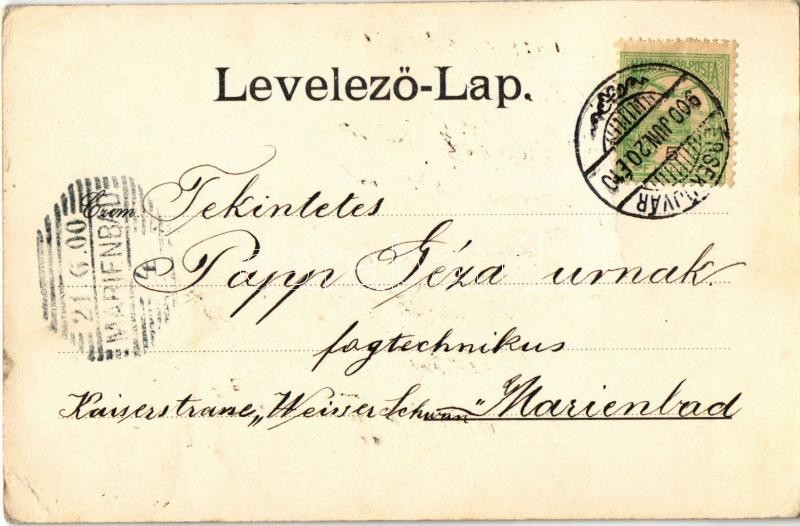 Levelező-Lap.
MAGYAR KIR. POSTA
ÉRSEKÚJVÁR
900 JUN. 20
Czim Tekintetes
Papp Géza urnak
fogtechnikus
Kaiserstrane „Weisser Schwan" Marienbad
21.6.00
MARIENBAD